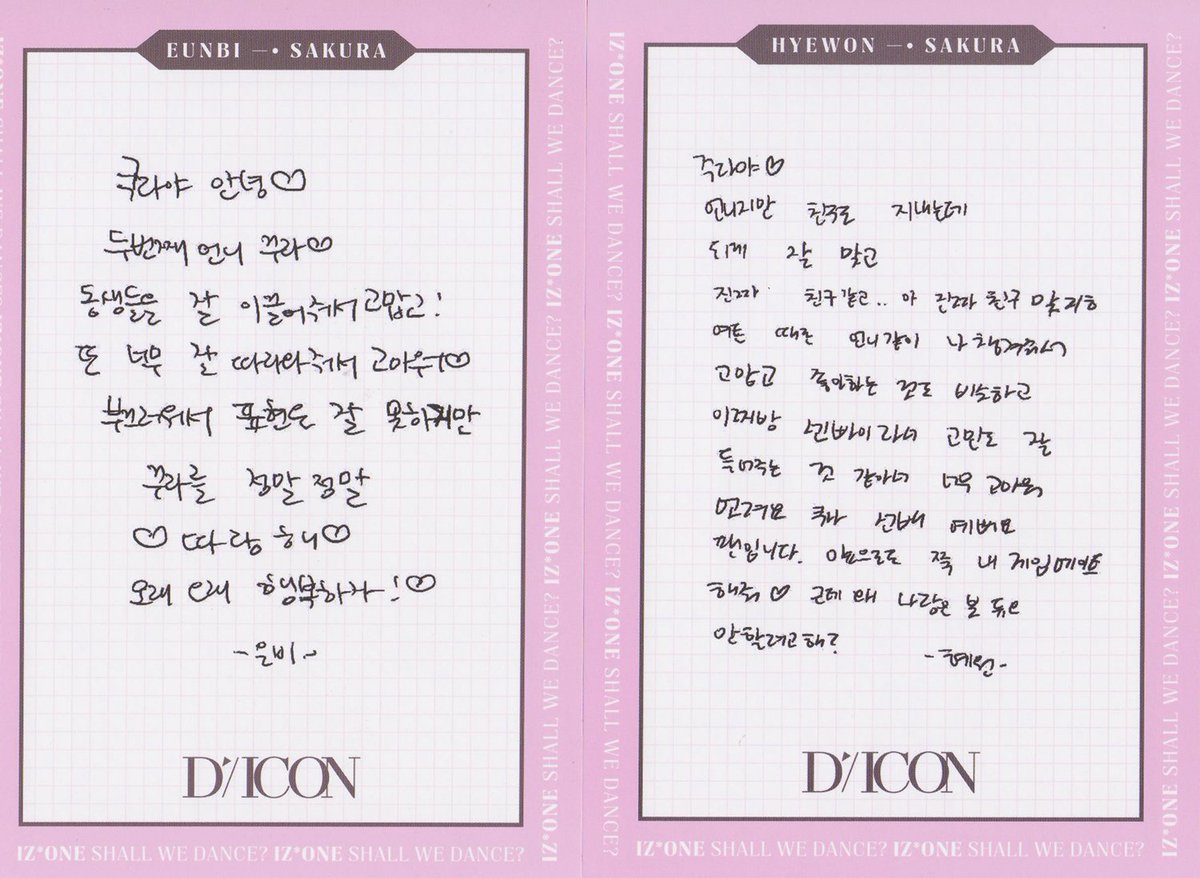 EUNBI —• SAKURA
꾸라야 안녕♡
두번째 언니 꾸라♡
동생들을 잘 이끌어줘서 고맙고!
또 너무 잘 따라와줘서 고마워♡
부끄러워서 표현은 잘 못하지만
꾸라를 정말 정말
♡ 따랑해♡
오래 오래 행복하자!♡
-은비-
D'/ICON
IZ*ONE SHALL WE DANCE? IZ*ONE SHALL WE DANCE?
IZ*ONE SHALL WE DANCE? IZ*ONE SHALL WE DANCE?
HYEWON —• SAKURA
꾸라야♡
언니지만 친구로 지내는데
되게 잘 맞고
진짜 친구같고.. 아 진짜 친구 맞지ㅎ
여튼 때론 언니같이 나 챙겨줘서
고맙고 좋아하는 것도 비슷하고
이꾸방 고민도 잘
들어주는 것 같아서 너무 고마워
선배 예뻐요
팬입니다. 앞으로도 쭉 내 게임메이트
해줘 ♡ 근데 왜 나랑은 볼 뽀뽀
안할려고해?
-혜원-
D'/ICON
IZ*ONE SHALL WE DANCE? IZ*ONE SHALL WE DANCE?
IZ*ONE SHALL WE DANCE? IZ*ONE SHALL WE DANCE?
IZ*ONE SHALL WE DANCE? IZ*ONE SHALL WE DANCE?